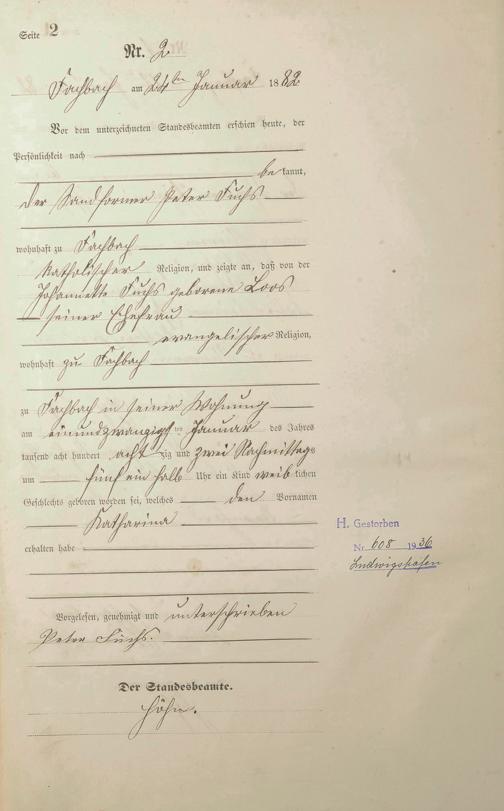 Seite 2
Nr. 2
Fachbach am 24ten Januar 1882
Vor dem unterzeichneten Standesbeamten erschien heute, der
Persönlichkeit nach
bekannt,
der Sandformer Peter Fuchs
wohnhaft zu Fachbach
katholischer Religion, und zeigte an, daß von der
Johannette Fuchs geborene Loos
seiner Ehefrau
evangelischer Religion,
wohnhaft zu Fachbach
zu Fachbach in seiner Wohnung
am einundzwanzigsten Januar des Jahres
tausend acht hundert achtzig und zwei Nachmittags
um fünf ein halb Uhr ein Kind weiblichen
Geschlechts geboren worden sei, welches den Vornamen
Katharina
erhalten habe
Vorgelesen, genehmigt und unterschrieben
Peter Fuchs.
Der Standesbeamte.
Höhn.
H. Gestorben
Nr. 608 1936
Ludwigshafen